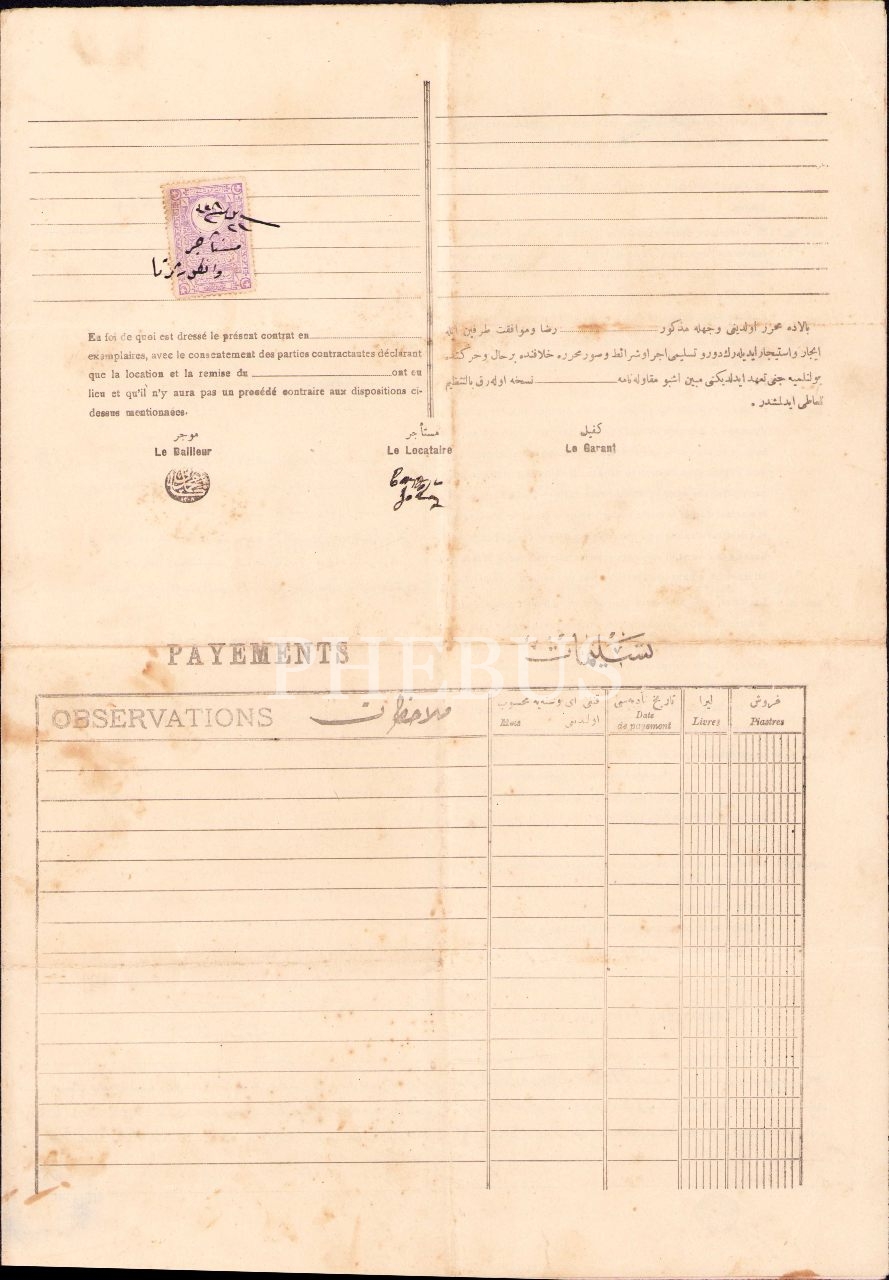 En foi de quoi est dressé le présent contrat en
exemplaires, avec le consentement des parties contractantes déclarant
que la location et la remise du ont eu
lieu et qu'il n'y aura pas un procédé contraire aux dispositions ci-
dessus mentionnées.
بالاده محرر اولدیغی وجهله مذكور رضا وموافقت طرفین ایله
ایجار واستیجار ایدیله رك دور و تسلیمی اجرا و شرائط و صور محرره خلافنده بر حال و حركتده
تعهد ایدلدیكنی مبین اشبو مقاوله نامه نسخه اوله رق بالتنظیم
تعاطی ایدلمشدر .
موجر
مستأجر
كفیل
Le Bailleur
Le Locataire
Le Garant
مستأجر
PAYEMENTS
تسلیمات
PHEBUS
OBSERVATIONS
ملاحظات
اولدیغی
Mois
تاریخ تأدیه سی
Date
de payement
لیرا
Livres
غروش
Piastres